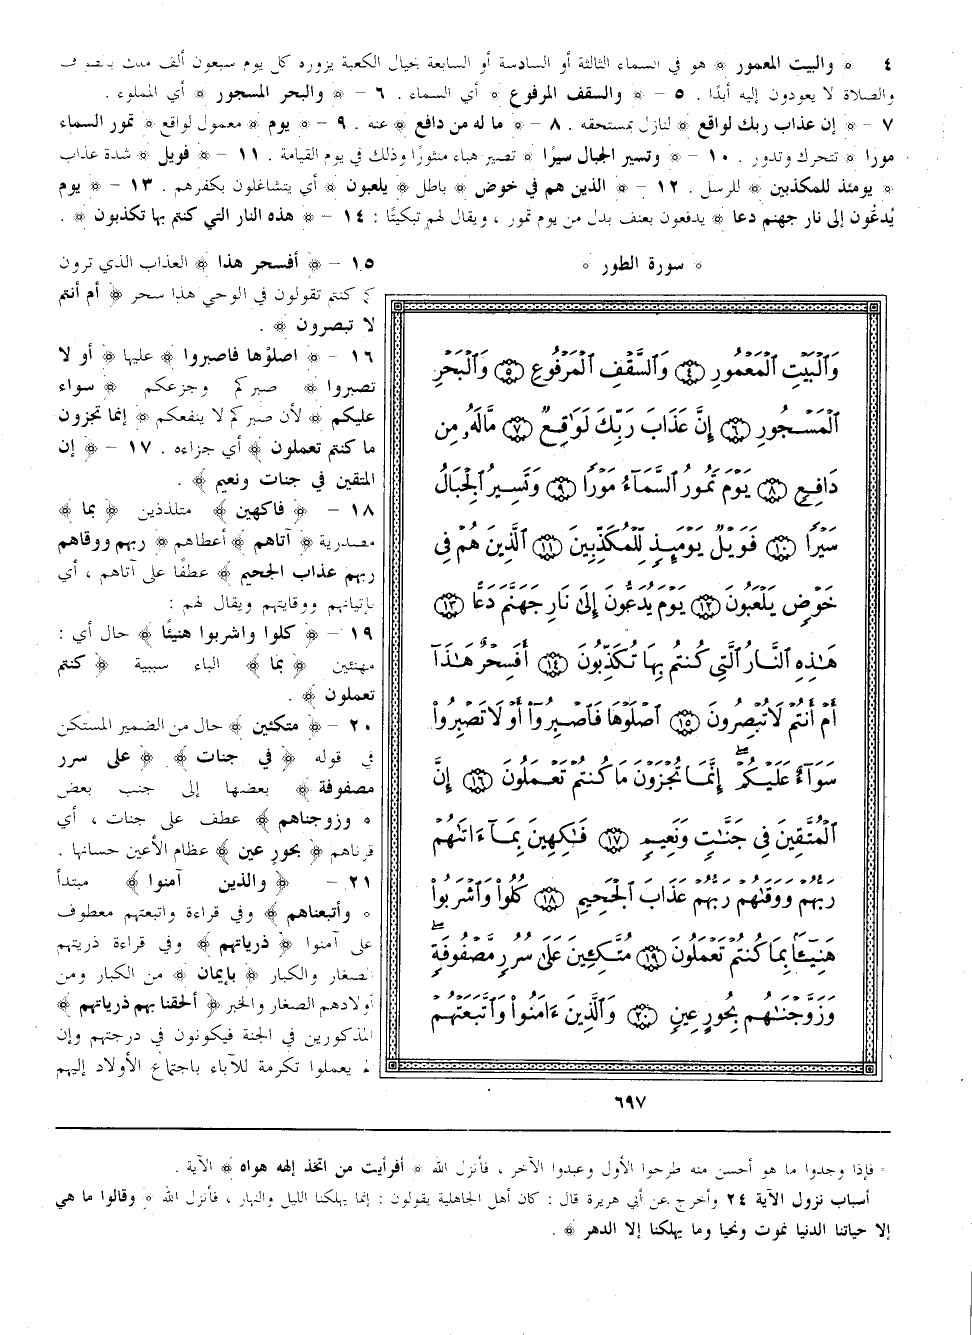 ٤ ﴿ والبيت المعمور ﴾ هو في السماء الثالثة أو السادسة أو السابعة بحيال الكعبة يزوره كل يوم سبعون ألف ملك بالطواف
والصلاة لا يعودون إليه أبدًا . ٥ - ﴿ والسقف المرفوع ﴾ أي السماء . ٦ - ﴿ والبحر المسجور ﴾ أي المملوء .
٧ - ﴿ إن عذاب ربك لواقع ﴾ لنازل بمستحقه . ٨ - ﴿ ما له من دافع ﴾ عنه . ٩ - ﴿ يوم ﴾ معمول لواقع ﴿ تمور السماء
مورا ﴾ تتحرك وتدور . ١٠ - ﴿ وتسير الجبال سيرًا ﴾ تصير هباء منثورًا وذلك في يوم القيامة . ١١ - ﴿ فويل ﴾ شدة عذاب
﴿ يومئذ للمكذبين ﴾ للرسل . ١٢ - ﴿ الذين هم في خوض ﴾ باطل ﴿ يلعبون ﴾ أي يتشاغلون بكفرهم . ١٣ - ﴿ يوم
يُدعُّون إلى نار جهنم دعا ﴾ يدفعون بعنف بدل من يوم تمور ، ويقال لهم تبكيتًا : ١٤ - ﴿ هذه النار التي كنتم بها تكذبون ﴾ .
﴿ سورة الطور ﴾
وَٱلْبَيْتِ ٱلْمَعْمُورِ ٤ وَٱلسَّقْفِ ٱلْمَرْفُوعِ ٥ وَٱلْبَحْرِ
ٱلْمَسْجُورِ ٦ إِنَّ عَذَابَ رَبِّكَ لَوَٰقِعٌ ٧ مَّا لَهُۥ مِن
دَافِعٍ ٨ يَوْمَ تَمُورُ ٱلسَّمَآءُ مَوْرًا ٩ وَتَسِيرُ ٱلْجِبَالُ
سَيْرًا ١٠ فَوَيْلٌ يَوْمَئِذٍ لِّلْمُكَذِّبِينَ ١١ ٱلَّذِينَ هُمْ فِى
خَوْضٍ يَلْعَبُونَ ١٢ يَوْمَ يُدَعُّونَ إِلَىٰ نَارِ جَهَنَّمَ دَعًّا ١٣
هَٰذِهِ ٱلنَّارُ ٱلَّتِى كُنتُم بِهَا تُكَذِّبُونَ ١٤ أَفَسِحْرٌ هَٰذَآ
أَمْ أَنتُمْ لَا تُبْصِرُونَ ١٥ ٱصْلَوْهَا فَٱصْبِرُوٓا۟ أَوْ لَا تَصْبِرُوا۟
سَوَآءٌ عَلَيْكُمْ إِنَّمَا تُجْزَوْنَ مَا كُنتُمْ تَعْمَلُونَ ١٦ إِنَّ
ٱلْمُتَّقِينَ فِى جَنَّٰتٍ وَنَعِيمٍ ١٧ فَٰكِهِينَ بِمَآ ءَاتَىٰهُمْ
رَبُّهُمْ وَوَقَىٰهُمْ رَبُّهُمْ عَذَابَ ٱلْجَحِيمِ ١٨ كُلُوا۟ وَٱشْرَبُوا۟
هَنِيٓـًٔۢا بِمَا كُنتُمْ تَعْمَلُونَ ١٩ مُتَّكِـِٔينَ عَلَىٰ سُرُرٍ مَّصْفُوفَةٍ
وَزَوَّجْنَٰهُم بِحُورٍ عِينٍ ٢٠ وَٱلَّذِينَ ءَامَنُوا۟ وَٱتَّبَعَتْهُمْ
١٥ - ﴿ أفسحر هذا ﴾ العذاب الذي ترون
كما كنتم تقولون في الوحي هذا سحر ﴿ أم أنتم
لا تبصرون ﴾ .
١٦ - ﴿ اصلوْها فاصبروا ﴾ عليها ﴿ أو لا
تصبروا ﴾ صبركم وجزعكم ﴿ سواء
عليكم ﴾ لأن صبركم لا ينفعكم ﴿ إنما تجزون
ما كنتم تعملون ﴾ أي جزاءه . ١٧ - ﴿ إن
المتقين في جنات ونعيم ﴾ .
١٨ - ﴿ فاكهين ﴾ متلذذين ﴿ بما ﴾
مصدرية ﴿ آتاهم ﴾ أعطاهم ﴿ ربهم ووقاهم
ربهم عذاب الجحيم ﴾ عطفًا على آتاهم ، أي
بإتيانهم ووقايتهم ويقال لهم :
١٩ - ﴿ كلوا واشربوا هنيئًا ﴾ حال أي :
مهنئين ﴿ بما ﴾ الباء سببية ﴿ كنتم
تعملون ﴾ .
٢٠ - ﴿ متكئين ﴾ حال من الضمير المستكن
في قوله ﴿ في جنات ﴾ ﴿ على سرر
مصفوفة ﴾ بعضها إلى جنب بعض
﴿ وزوجناهم ﴾ عطف على جنات ، أي
قرناهم ﴿ بحور عين ﴾ عظام الأعين حسانها .
٢١ - ﴿ والذين آمنوا ﴾ مبتدأ
﴿ وأتبعناهم ﴾ وفي قراءة واتبعتهم معطوف
على آمنوا ﴿ ذرياتهم ﴾ وفي قراءة ذريتهم
الصغار والكبار ﴿ بإيمان ﴾ من الكبار ومن
أولادهم الصغار والخبر ﴿ ألحقنا بهم ذرياتهم ﴾
المذكورين في الجنة فيكونون في درجتهم وإن
لم يعملوا تكرمة للآباء باجتماع الأولاد إليهم
٦٩٧
= فإذا وجدوا ما هو أحسن منه طرحوا الأول وعبدوا الآخر ، فأنزل الله ﴿ أفرأيت من اتخذ إلهه هواه ﴾ الآية .
أسباب نزول الآية ٢٤ وأخرج عن أبي هريرة قال : كان أهل الجاهلية يقولون : إنما يهلكنا الليل والنهار ، فأنزل الله ﴿ وقالوا ما هي
إلا حياتنا الدنيا نموت ونحيا وما يهلكنا إلا الدهر ﴾ .